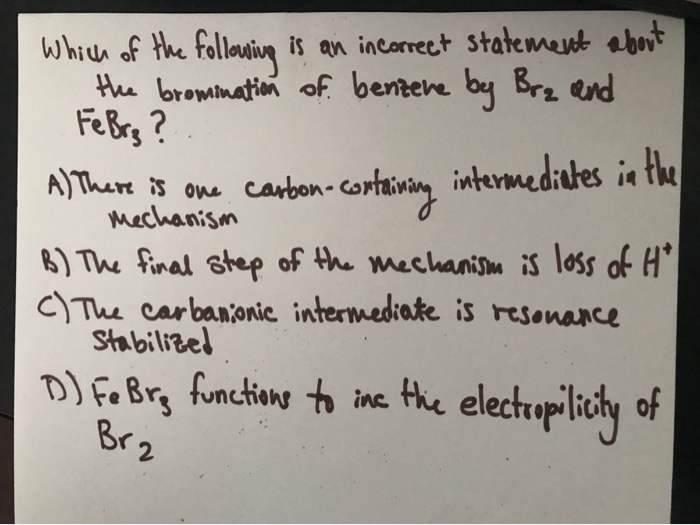 Which of the following is an incorrect statement about
the bromination of benzene by Br2 and
FeBr3?
A) There is one carbon-containing intermediates in the
mechanism
B) The final step of the mechanism is loss of H+
C) The carbanionic intermediate is resonance
stabilized
D) FeBr3 functions to inc the electropilicity of
Br2